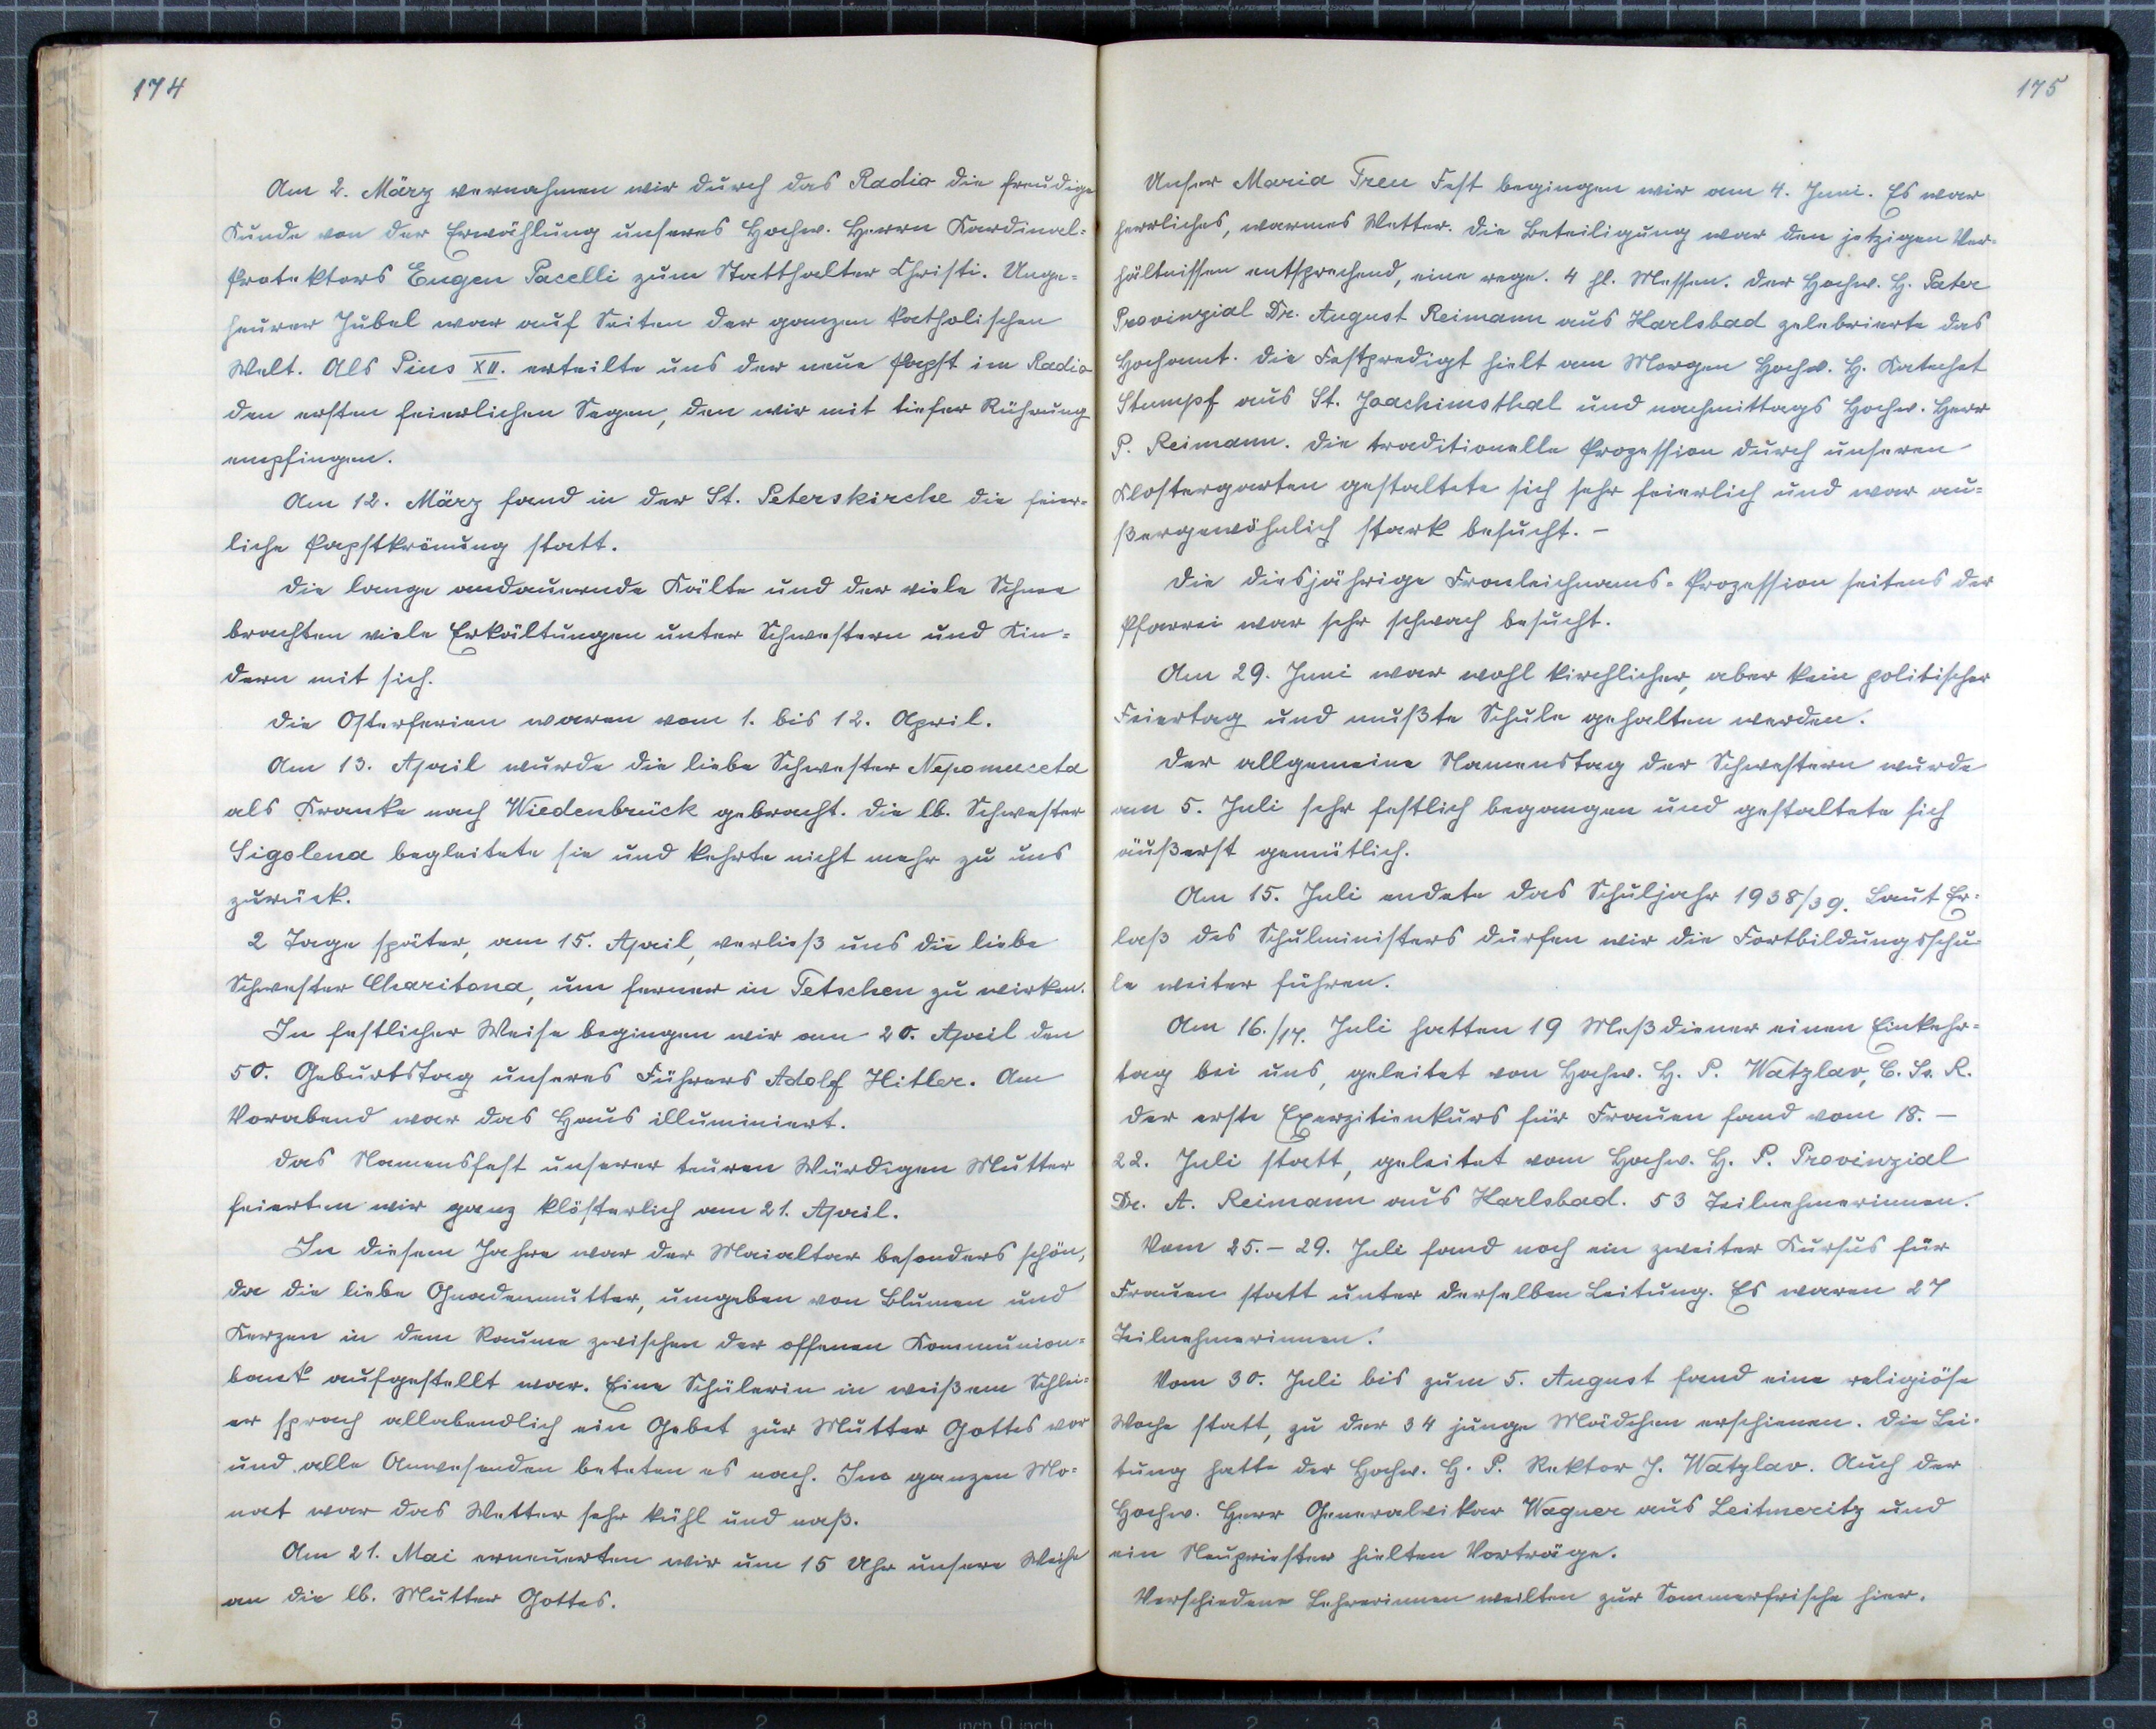 174
Am 2. März vernahmen wir durch das Radio die freudige
Kunde von der Erwählung unseres Hochw. Herrn Kardinal-
protektors Eugen Pacelli zum Statthalter Christi. Unge-
heurer Jubel war auf Seiten der ganzen katholischen
Welt. Als Pius XII. erteilte uns der neue Papst im Radio
den ersten feierlichen Segen, den wir mit tiefer Rührung
empfingen.
Am 12. März fand in der St. Peterskirche die feier-
liche Papstkrönung statt.
Die lange andauernde Kälte und der viele Schnee
brachten viele Erkältungen unter Schwestern und Kin-
dern mit sich.
Die Osterferien waren vom 1. bis 12. April.
Am 13. April wurde die liebe Schwester Nepomuceta
als Kranke nach Wiedenbrück gebracht. Die lb. Schwester
Sigolena begleitete sie und kehrte nicht mehr zu uns
zurück.
2 Tage später, am 15. April, verließ uns die liebe
Schwester Charitona, um ferner in Tetschen zu wirken.
In festlicher Weise begingen wir am 20. April den
50. Geburtstag unseres Führers Adolf Hitler. Am
Vorabend war das Haus illuminiert.
Das Namensfest unserer teuren Würdigen Mutter
feierten wir ganz klösterlich am 21. April.
In diesem Jahre war der Maialtar besonders schön,
da die liebe Gnadenmutter, umgeben von Blumen und
Kerzen in dem Raume zwischen der offenen Kommunion-
bank aufgestellt war. Eine Schülerin in weißem Schlei-
er sprach allabendlich ein Gebet zur Mutter Gottes vor
und alle Anwesenden beteten es nach. Im ganzen Mo-
nat war das Wetter sehr kühl und naß.
Am 21. Mai erneuerten wir um 15 Uhr unsere Weihe
an die lb. Mutter Gottes.
175
Unser Maria Treu Fest begingen wir am 4. Juni. Es war
herrliches, warmes Wetter. Die Beteiligung war den jetzigen Ver-
hältnissen entsprechend, eine rege. 4 hl. Messen. Der Hochw. H. Pater
Provinzial Dr. August Reimann aus Karlsbad zelebrierte das
Hochamt. Die Festpredigt hielt am Morgen Hochw. H. Katechet
Stumpf aus St. Joachimsthal und nachmittags Hochw. Herr
P. Reimann. Die traditionelle Prozession durch unseren
Klostergarten gestaltete sich sehr feierlich und war au-
ßergewöhnlich stark besucht. –
Die diesjährige Fronleichnams-Prozession seitens der
Pfarrei war sehr schwach besucht.
Am 29. Juni war wohl kirchlicher, aber kein politischer
Feiertag und mußte Schule gehalten werden.
Der allgemeine Namenstag der Schwestern wurde
am 5. Juli sehr festlich begangen und gestaltete sich
äußerst gemütlich.
Am 15. Juli endete das Schuljahr 1938/39. Laut Er-
laß des Schulministers dürfen wir die Fortbildungsschu-
le weiter führen.
Am 16./17. Juli hatten 19 Meßdiener einen Einkehr-
tag bei uns, geleitet von Hochw. H. P. Watzlav, C. Ss. R.
Der erste Exerzitienkurs für Frauen fand vom 18. –
22. Juli statt, geleitet vom Hochw. H. P. Provinzial
Dr. A. Reimann aus Karlsbad. 53 Teilnehmerinnen.
Vom 25. – 29. Juli fand noch ein zweiter Kursus für
Frauen statt unter derselben Leitung. Es waren 27
Teilnehmerinnen.
Vom 30. Juli bis zum 5. August fand eine religiöse
Woche statt, zu der 34 junge Mädchen erschienen. Die Lei-
tung hatte der Hochw. H. P. Rektor J. Watzlav. Auch der
Hochw. Herr Generalvikar Wagner aus Leitmeritz und
ein Neupriester hielten Vorträge.
Verschiedene Lehrerinnen weilten zur Sommerfrische hier.
8 7 6 5 4 3 2 1 inch 0 inch 1 2 3 4 5 6 7 8 9